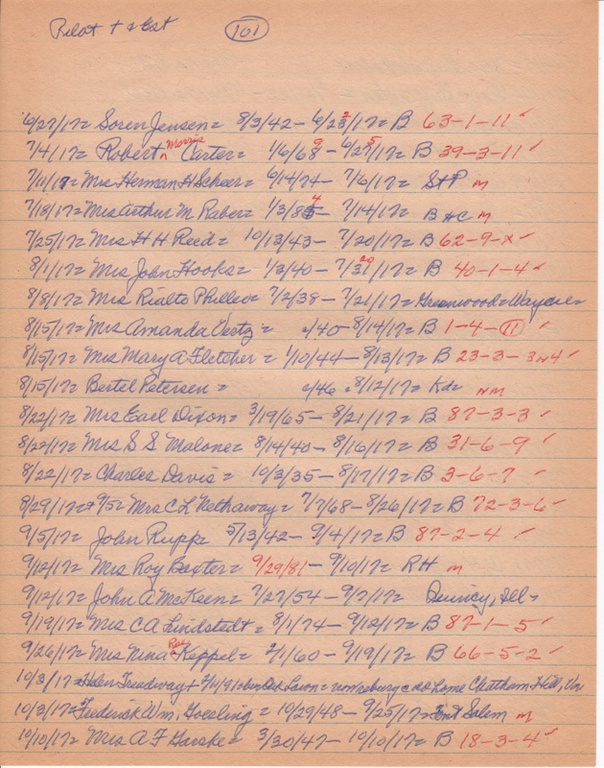 Pilot + & Est 101
6/27/17= Soren Jensen= 8/3/42 - 6/23/17= B 63-1-11 ✓
7/4/17= Robert Morris Carter= 1/6/68 9 - 6/25/17= B 39-3-11 ✓
7/11/17= Mrs Herman H Scheer= 6/14/74 - 7/6/17= St P m
7/18/17= Mrs Arthur M Raber= 1/3/84 - 7/14/17= B HC m
7/25/17= Mrs H H Reed= 10/13/43 - 7/20/17= B 62-9-x ✓
8/1/17= Mrs John Hooks= 1/3/40 - 7/30/17= B 40-1-4 ✓
8/8/17= Mrs Rialto 7/2/38 - 7/21/17= Greenwood=
8/15/17= Mrs Amanda = c/40 - 8/14/17= B 1-4-11 ✓
8/15/17= Mrs Mary A Fletcher= 1/10/44 - 8/13/17= B 23-3-3N4 ✓
8/15/17= Bertel Petersen= c/46 = 8/12/17= Kd= nm
8/22/17= Mrs Earl Dixon= 3/19/65 - 8/21/17= B 87-3-3 ✓
8/22/17= Mrs S S Malone= 8/14/40 - 8/16/17= B 31-6-9 ✓
8/22/17= Charles Davis= 10/3/35 - 8/17/17= B 3-6-7 ✓
8/29/17= + 9/5= Mrs C L Hathaway= 7/7/68 - 8/26/17= B 72-3-6 ✓
9/5/17= John Rupp= 5/13/42 - 9/4/17= B 87-2-4 ✓
9/12/17= Mrs Roy Baxter= 9/29/81 - 9/10/17= RH m
9/12/17= John A McKeen= 7/27/54 - 9/7/17= Quincy, Ill=
9/19/17= Mrs C A Lindstedt= 8/1/74 - 9/12/17= B 87-1-5 ✓
9/26/17= Mrs Nina Rae Keppel= 2/1/60 - 9/19/17= B 66-5-2 ✓
10/3/17= Helen Treadway + = home Chatham Hill, Va
10/3/17= Frederick Wm. Goesling= 10/29/48 - 9/25/17= Salem m
10/10/17= Mrs A F Garske= 3/30/47 - 10/10/17= B 18-3-4 ✓